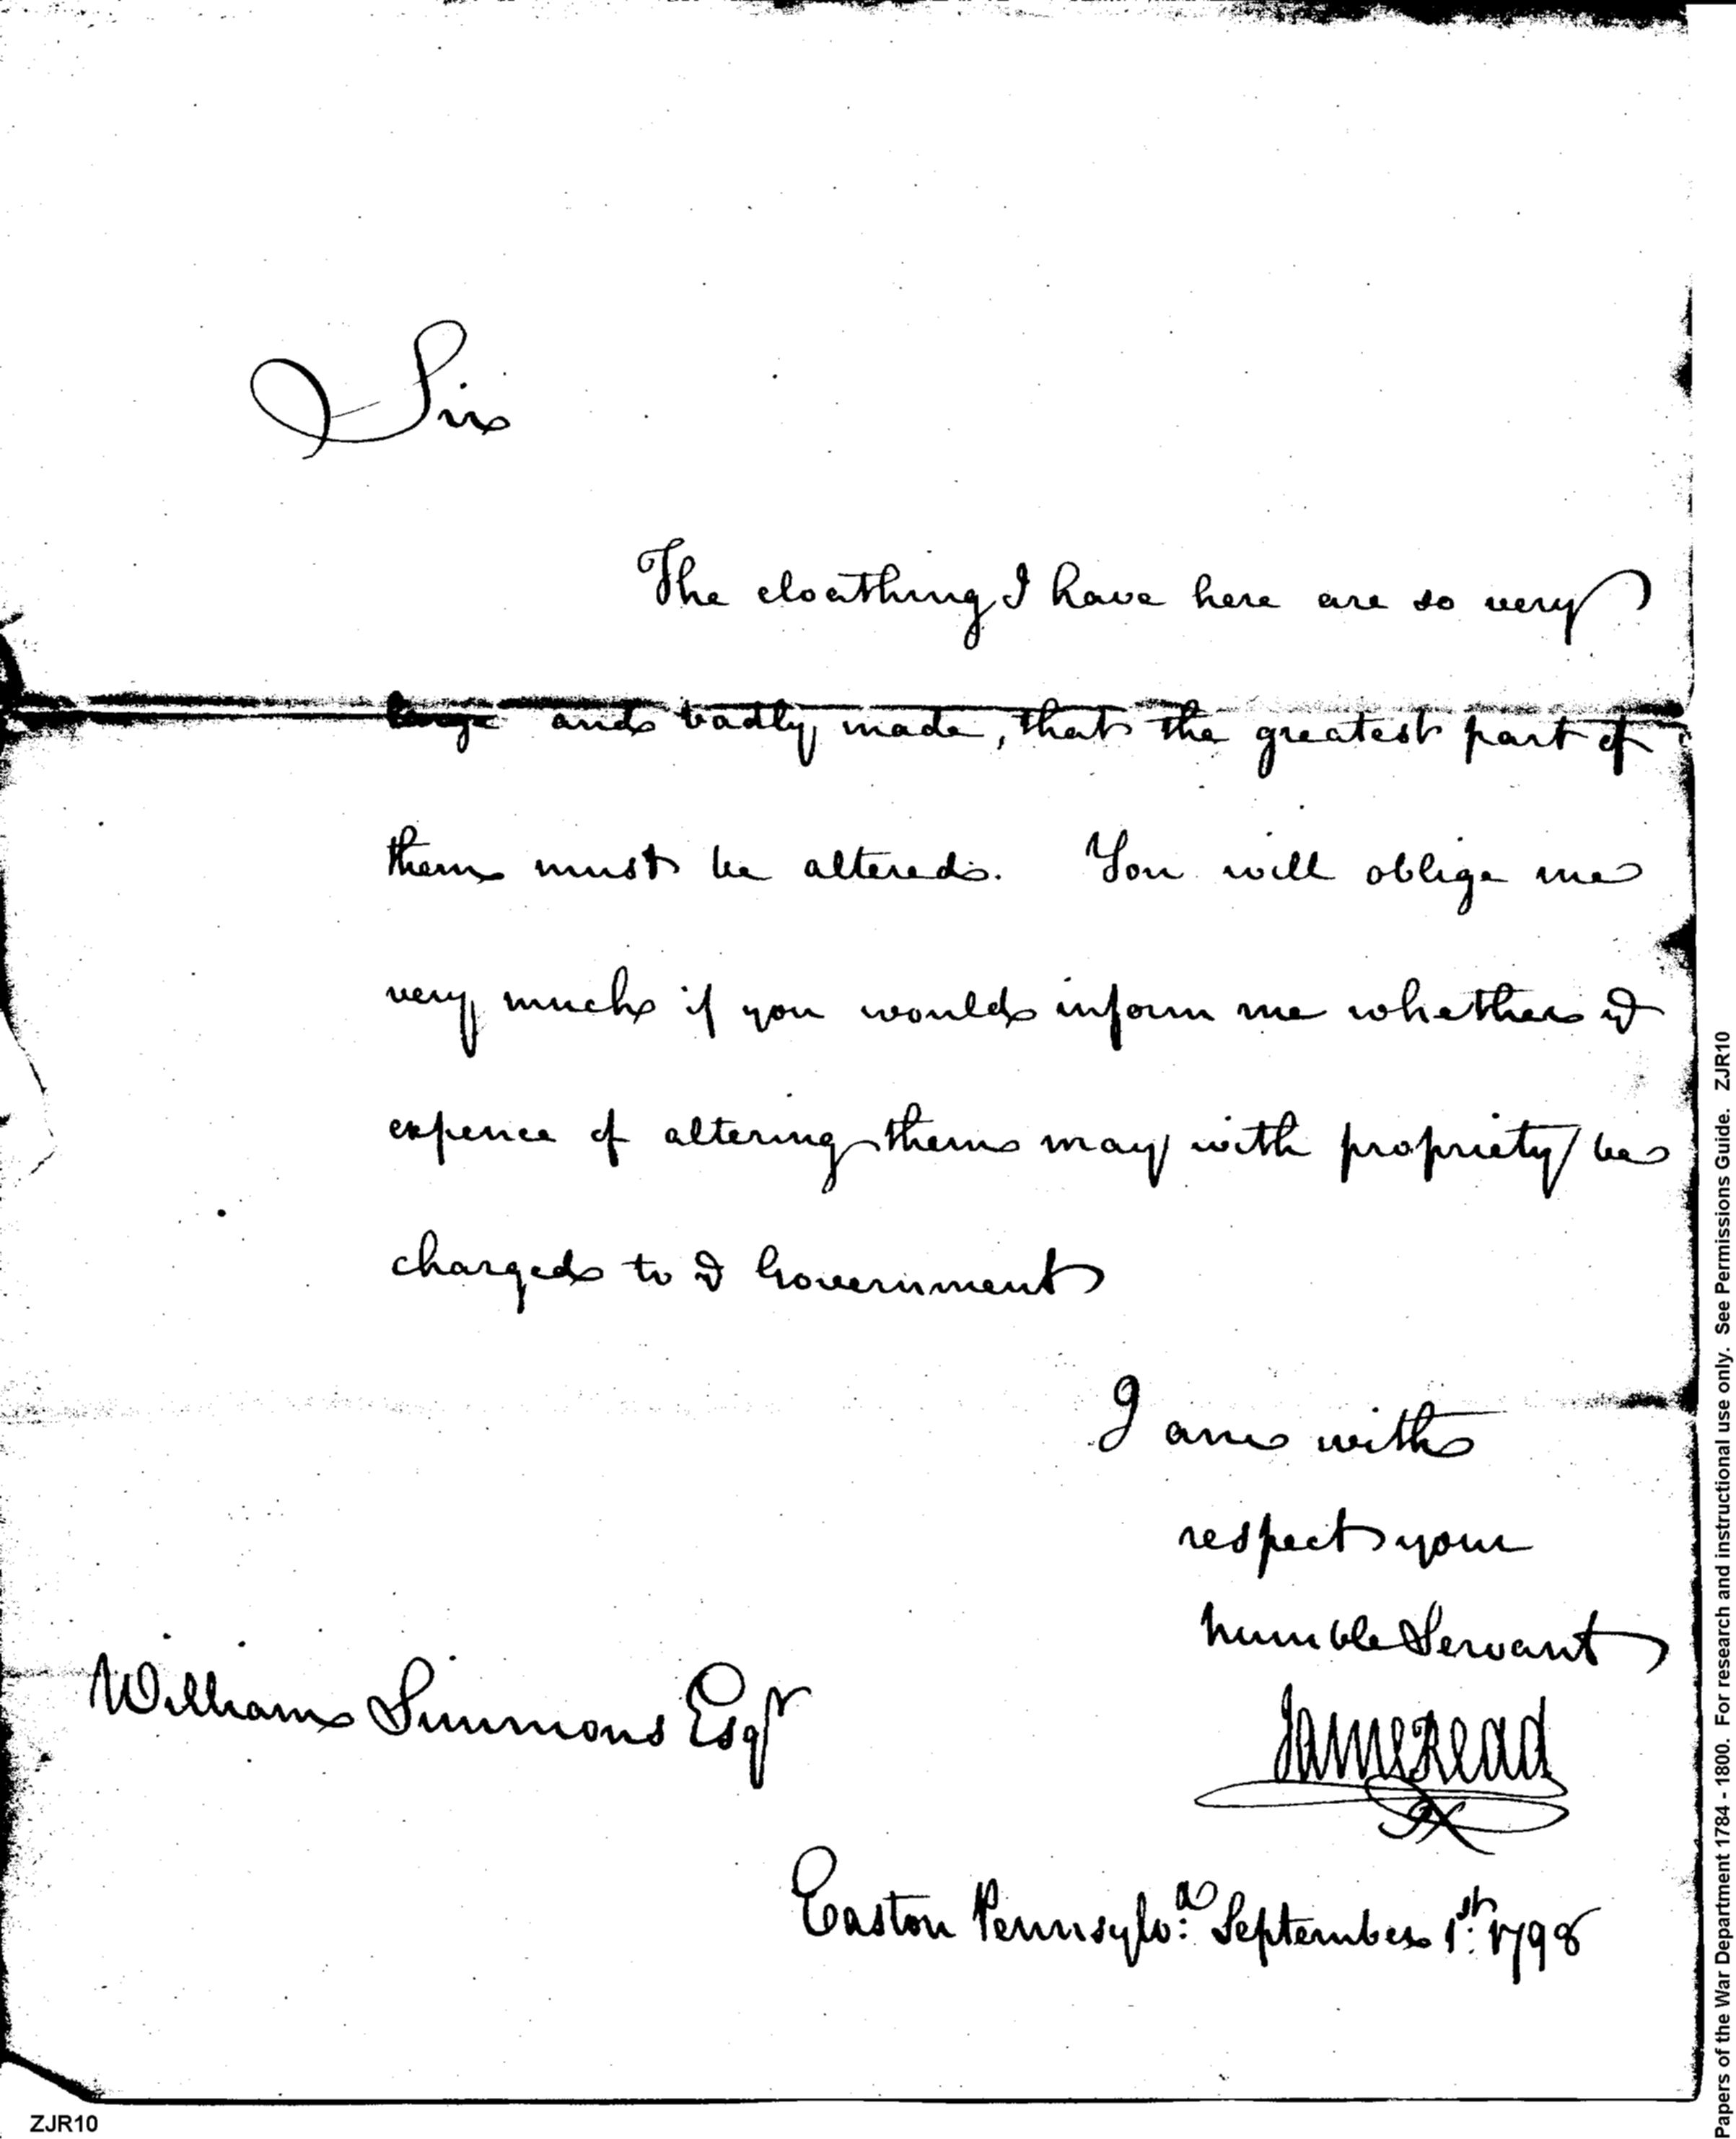 Sir
The cloathing I have here are so very
large and badly made, that the greatest part of
them must be altered. You will oblige me
very much if you would inform me whether ye
expence of altering them may with propriety be
charged to ye Government
I am with
respect your
humble Servant
James Read
William Simmons Esqr
Easton Pennsylv:a September 1st: 1798
ZJR10
Papers of the War Department 1784 - 1800. For research and instructional use only. See Permissions Guide. ZJR10